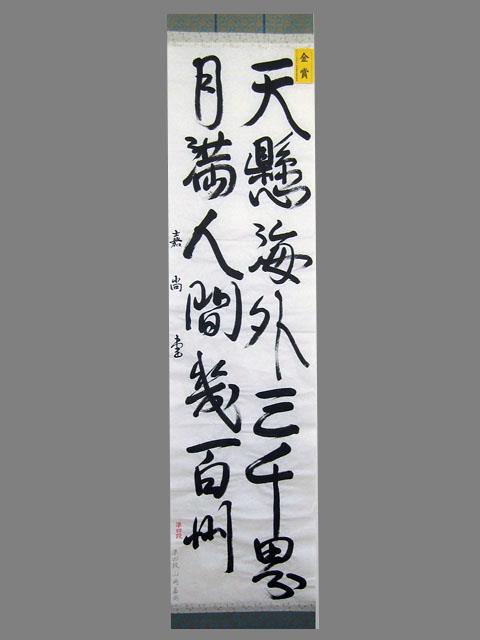 金賞
天懸海外三千界
月満人間幾百州
嘉尚書
準四段